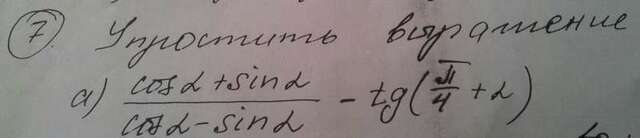 7. Упростить выражение
а) cosα+sinα / cosα-sinα - tg(π/4 + α)